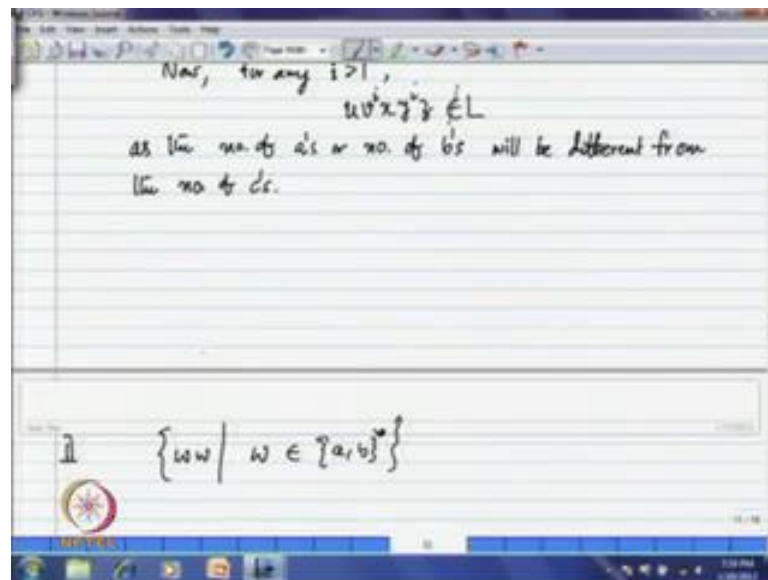 Now, for any i>1,
uvⁱxyⁱz ∉ L
as the no. of a's or no. of b's will be different from
the no of c's.
{ww | w ∈ {a,b}*}
NPTEL